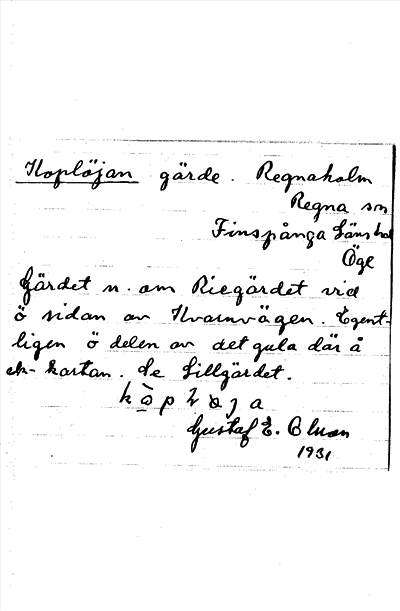 Koplöjan gärde. Regnaholm
Regna sn
Finspånga läns hd
Ögl
Gärdet n. om Riegärdet vid
ö sidan av Kvarnvägen. Egent-
ligen ö delen av det gula där å
ek-kartan. Se Lillgärdet.
Gustaf E. Bluan
1931